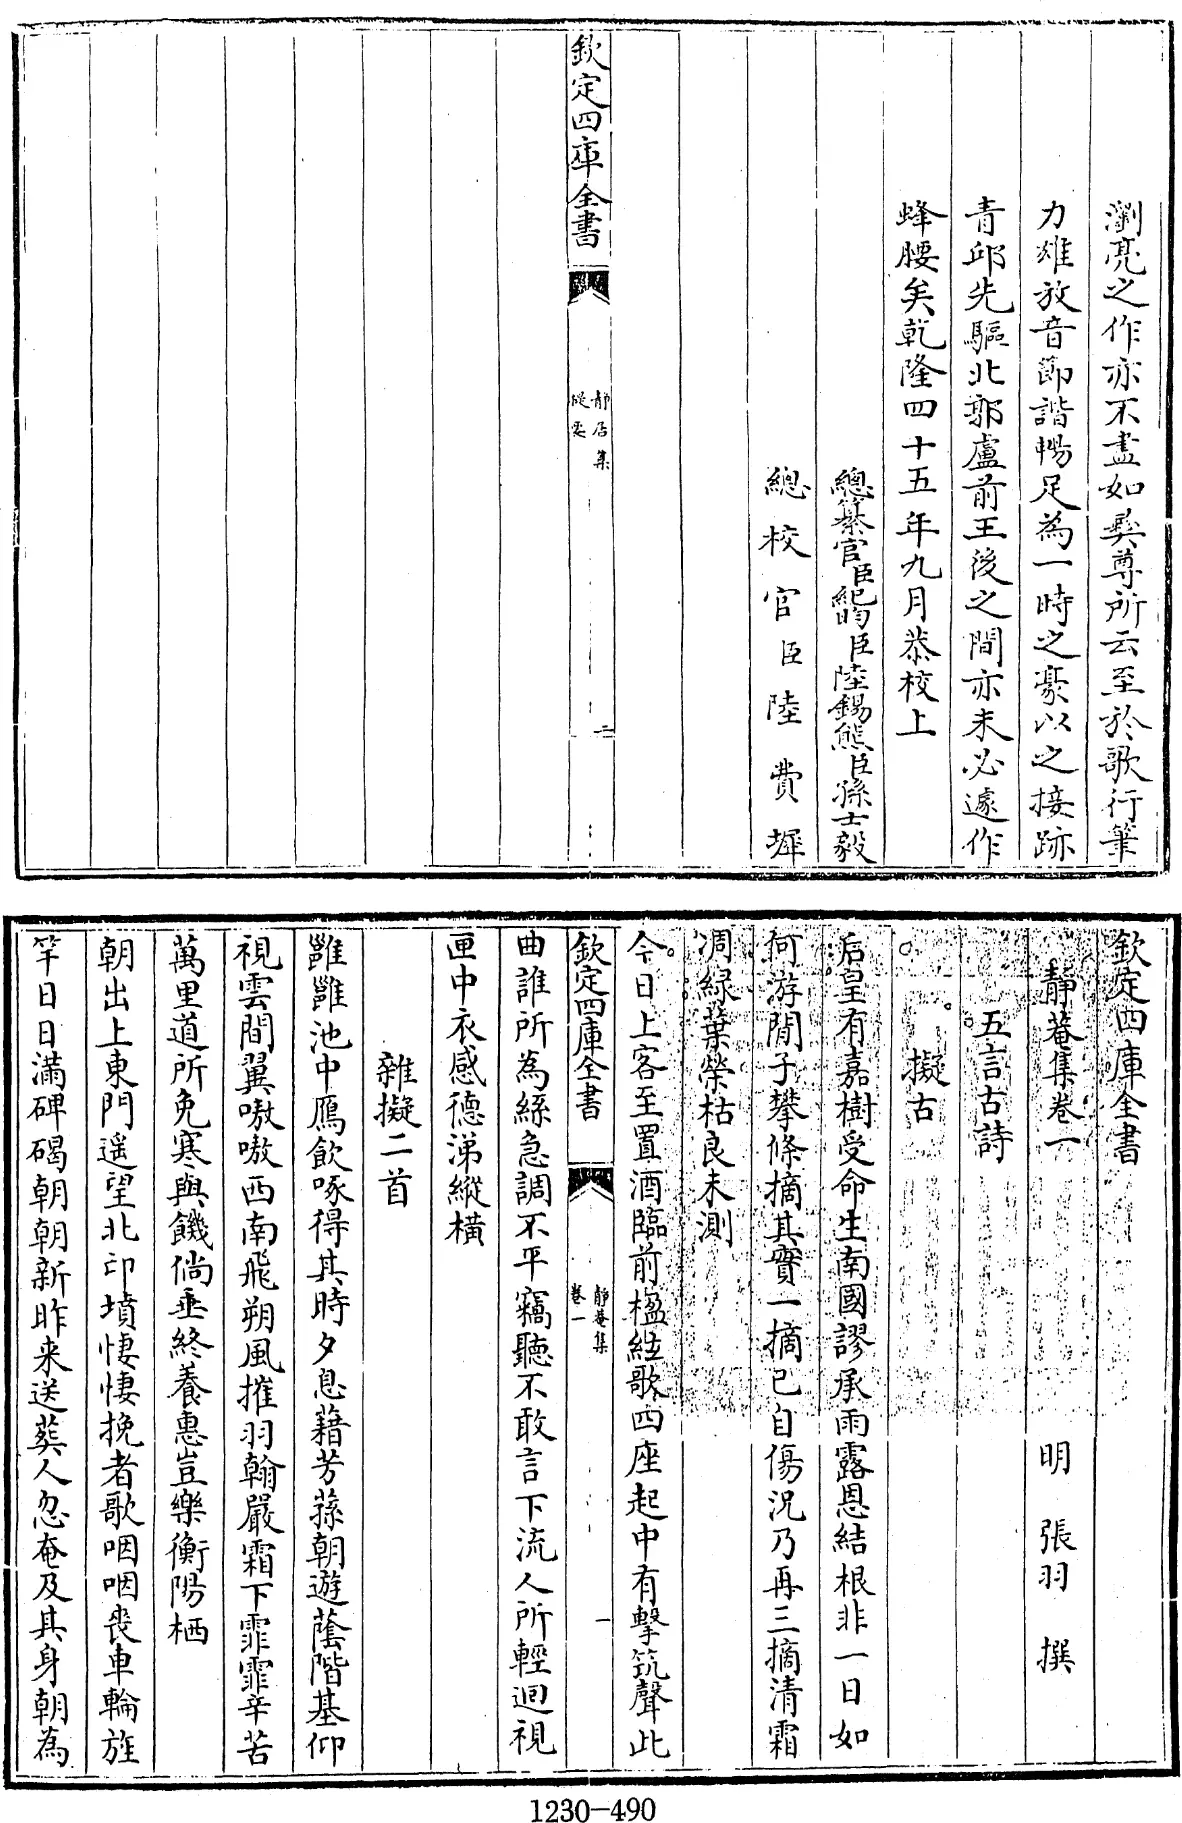 瀏亮之作亦不盡如彝尊所云至於歌行筆
力雄放音節諧暢足為一時之豪以之接跡
青邱先驅北郭盧前王後之間亦未必遽作
蜂腰矣乾隆四十五年九月恭校上
總纂官臣紀昀臣陸錫熊臣孫士毅
總校官臣陸費墀
欽定四庫全書
靜居集
提要
二
欽定四庫全書
靜菴集卷一
明 張羽 撰
五言古詩
擬古
后皇有嘉樹受命生南國謬承雨露恩結根非一日如
何游閒子攀條摘其實一摘已自傷況乃再三摘清霜
凋綠葉榮枯良未測
今日上客至置酒臨前楹絃歌四座起中有擊筑聲此
欽定四庫全書
靜菴集
卷一
一
曲誰所為絲急調不平竊聽不敢言下流人所輕迴視
匣中衣感德涕縱橫
雜擬二首
雝雝池中鴈飲啄得其時夕息藉芳蓀朝遊蔭階基仰
視雲間翼嗷嗷西南飛朔風摧羽翰嚴霜下霏霏辛苦
萬里道所免寒與饑倘垂終養惠豈樂衡陽栖
朝出上東門遥望北邙墳悽悽挽者歌咽咽喪車輪旌
竿日日滿碑碣朝朝新昨来送葬人忽奄及其身朝為
1230-490